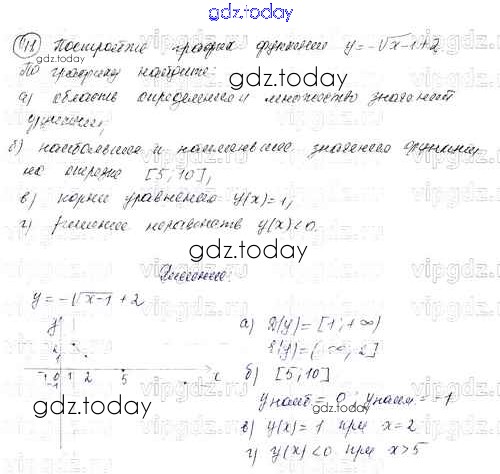 gdz.today
411 Постройте график функции y=-√x-1+2
По графику найдите:
gdz.today
а) область определения и множество значений
функции;
б) наибольшее и наименьшее значения функции
на отрезке [5;10];
в) корни уравнения y(x)=1;
г) решение неравенств y(x)<0.
gdz.today
Решение:
y=-√x-1+2
а) D(y)=[1;+∞)
E(y)=(-∞;2]
б) [5;10]
y наиб.=0; y наим.=-1
в) y(x)=1 при x=2
г) y(x)<0 при x>5
y
2
1
-1 0 1 2 5 x
-1
gdz.today
gdz.today
vipgdz.today